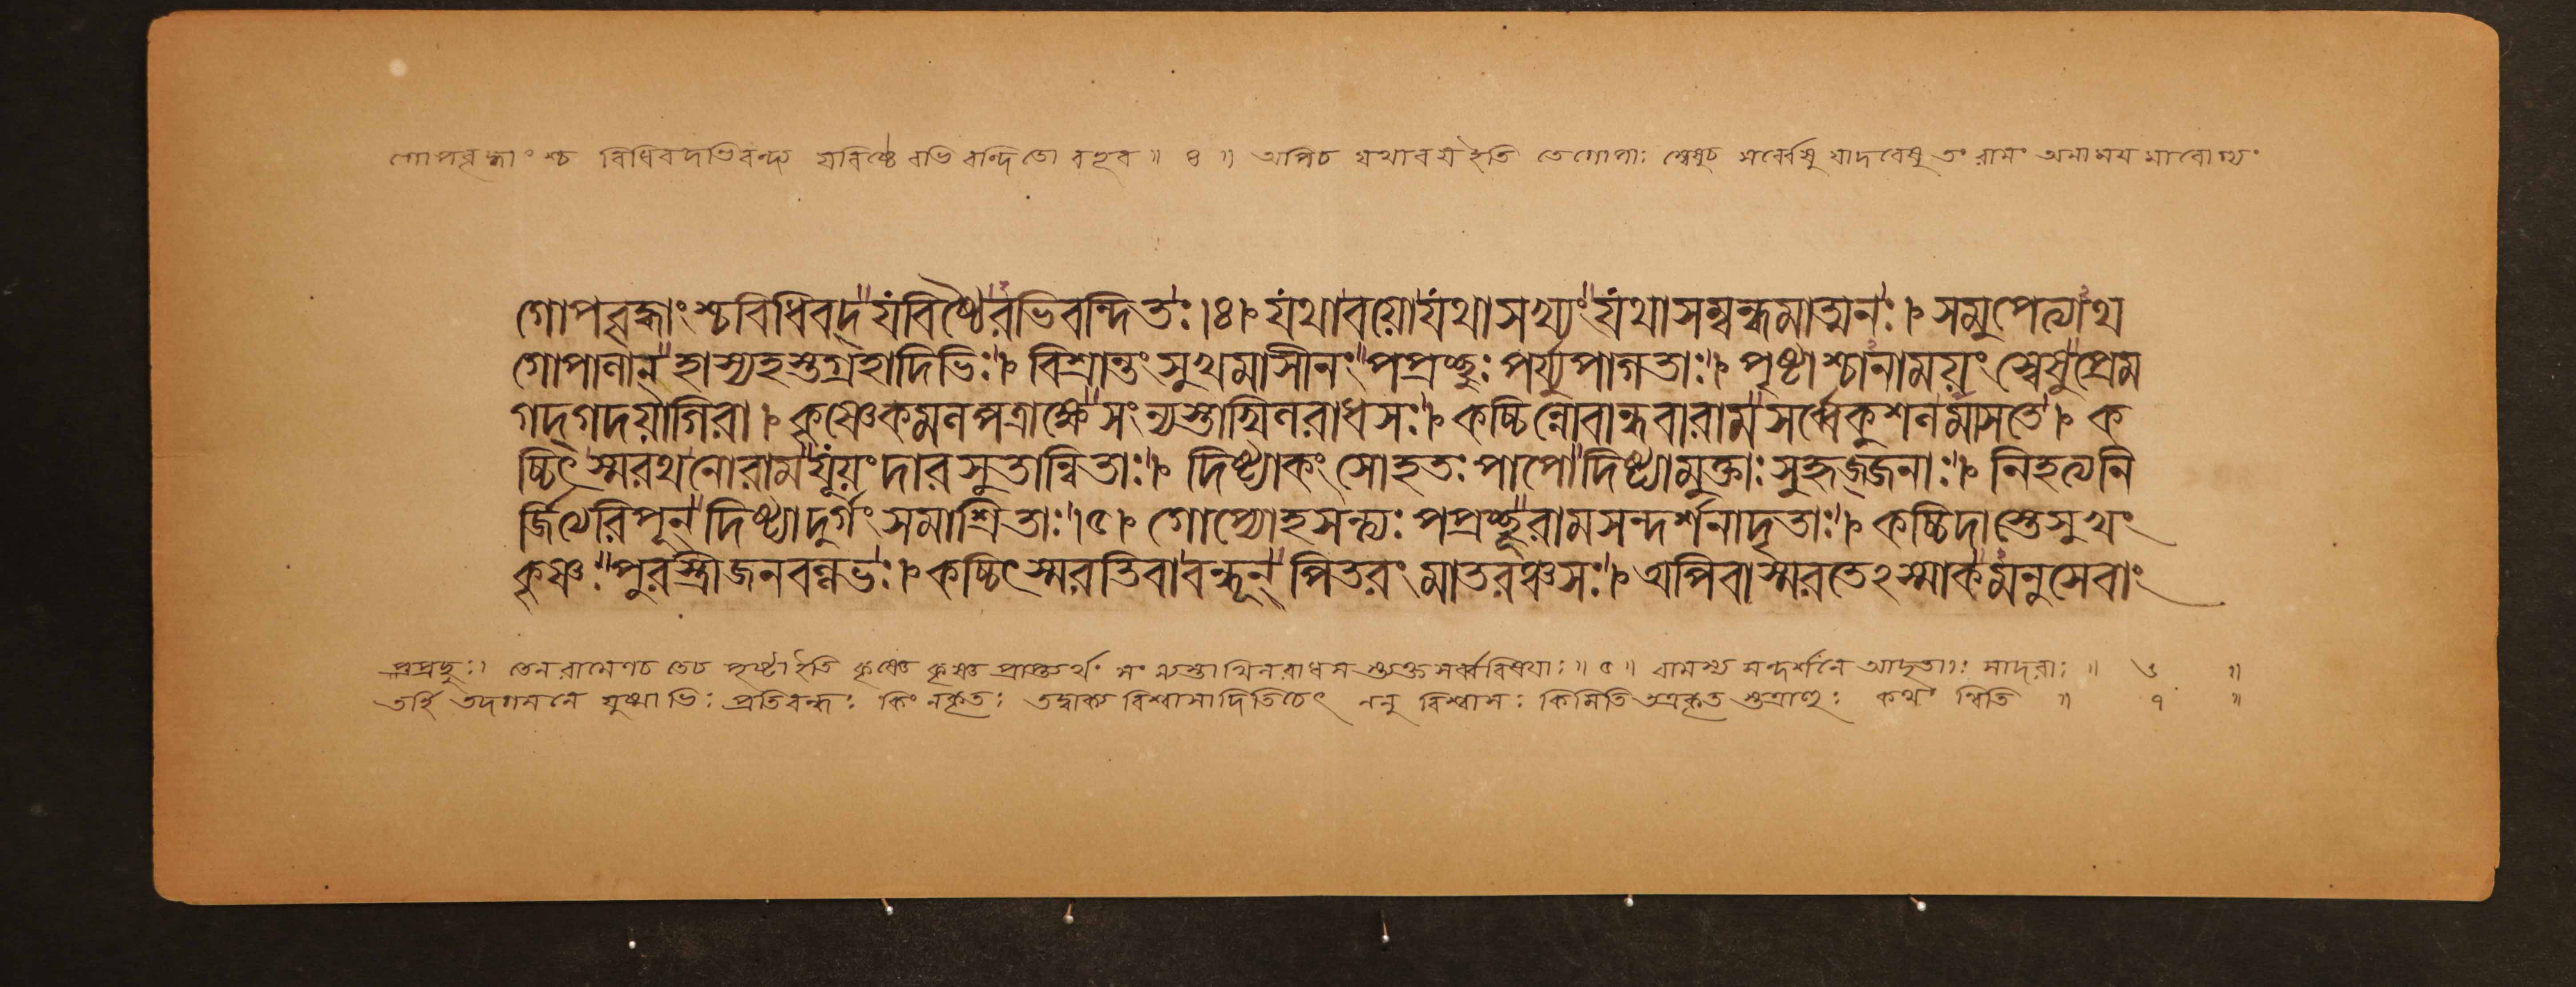 গোপবৃদ্ধাংশ্চ বিধিবদভিবন্দ্য যবিষ্ঠেরভিবন্দিতো বহুব ॥ ৪ ॥ অপিচ যথাবয ইতি তেগোপাঃ স্বেষুচ সর্ব্বেষু যাদবেষু তং রামং অনাময়মারোগ্যং
গোপবৃদ্ধাংশ্চবিধিবদ্যবিষ্ঠৈরভিবন্দিতঃ।৪। যথাবয়োযথাসখ্যংযথাসম্বন্ধমাত্মনঃ। সমুপেত্যাথ
গোপালান্হাস্যহস্তগ্রহাদিভিঃ। বিশ্রান্তংসুখমাসীনংপপ্রচ্ছুঃপর্য্যুপাগতাঃ। পৃষ্টাশ্চানাময়ং স্বেষুপ্রেম
গদ্গদয়াগিরা। কৃষ্ণেকমলপত্রাক্ষেসংন্যস্তাখিলরাধসঃ। কচ্চিন্নোবান্ধবারামসর্ব্বেকুশলমাসতে। ক
চ্চিৎস্মরথনোরামযূয়ংদারসুতান্বিতাঃ। দিষ্ট্যাকংসোহতঃপাপোদিষ্ট্যামুক্তাঃসুহৃজ্জনাঃ। নিহত্যনি
র্জিত্যরিপূন্দিষ্ট্যাদুর্গংসমাশ্রিতাঃ।৫। গোপ্যোহসন্ত্যঃপপ্রচ্ছূরামসন্দর্শনাদৃতাঃ। কচ্চিদাস্তেসুখং
কৃষ্ণঃপুরস্ত্রীজনবল্লভঃ। কচ্চিৎস্মরতিবাবন্ধূন্পিতরংমাতরঞ্চসঃ। অপিবাস্মরতেঽস্মাকমনুসেবাং
পপ্রছুঃ। তেনরামেণচ তেচ পৃষ্টা ইতি কৃষ্ণে কৃষ্ণপ্রাপ্ত্যর্থং সংন্যস্তাখিলরাধস স্ত্যক্তসর্ব্ববিষয়াঃ॥ ৫ ॥ রামস্য সন্দর্শনে আদৃতাঃ সাদরাঃ ॥ ৬ ॥
তর্হি তদগমনে যুষ্মাভিঃ প্রতিবন্ধঃ কিং নকৃতঃ তদ্বাক্য বিশ্বাসাদিতিচেৎ ননু বিশ্বাসঃ কিমিতি কথং ন্বিতি ॥ ৭ ॥